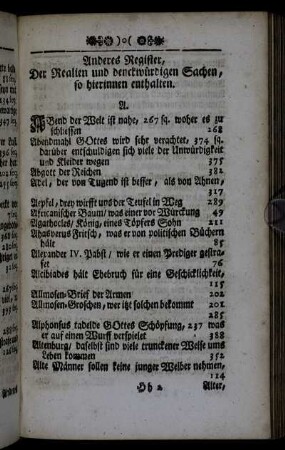 )o(
Anderes Register,
Der Realien und denckwürdigen Sachen,
so hierinnen enthalten.
A.
ABend der Welt ist nahe, 267 sq. woher es zu
schliessen 268
Abendmahl GOttes wird sehr verachtet, 374 sq.
darüber entschuldigen sich viele der Unwürdigkeit
und Kleider wegen 375
Abgott der Reichen 382
Adel, der von Tugend ist besser, als von Ahnen,
317
Aepfel, drey wirfft uns der Teufel in Weg 289
Africanischer Baum/ was einer vor Würckung 49
Agathocles/ König, eines Töpfers Sohn 211
Ahasverus Fritsch, was er von politischen Büchern
hält 85
Alexander IV. Pabst, wie er einen Prediger gestra-
fet 76
Alcibiades hält Ehebruch für eine Geschicklichkeit,
115
Allmosen-Brief der Armen 202
Allmosen-Groschen, wer itzt solchen bekommt 201
285
Alphonsus tadelde GOttes Schöpfung, 237 was
er auf einen Wurff verspielet 388
Altenburg/ daselbst sind viele trunckener Weise ums
Leben kommen 352
Alte Männer sollen keine junger Weiber nehmen,
114
Hh 2 Alter,